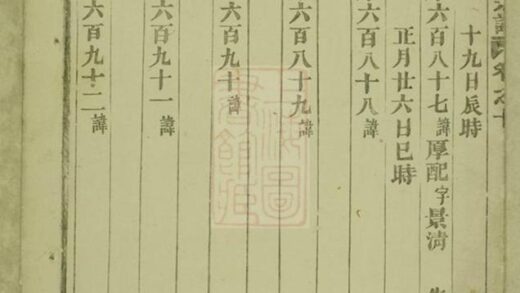 卷之十
十九日辰時
六百八十七諱厚配字景清
正月廿六日巳時
六百八十八諱
六百八十九諱
六百九十諱
六百九十一諱
六百九十二諱